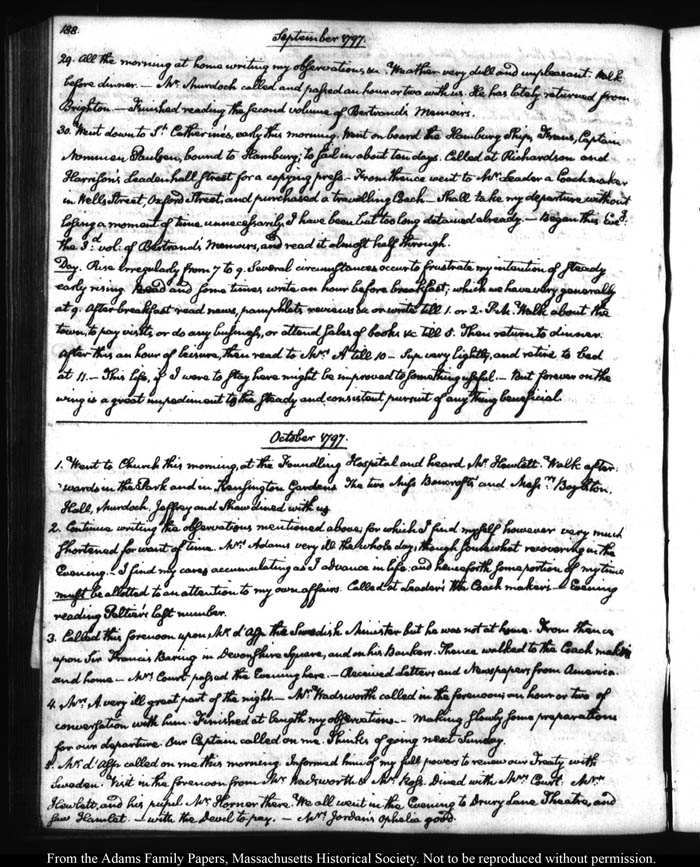 188.
September 1797.
29. All the morning at home writing my observations &c. Weather very dull and unpleasant. Walk
before dinner. — Mr. Murdoch called and passed an hour or two with us. He has lately returned from
Brighton. — Finished reading the second volume of Bertrand's Memoirs.
30. Went down to St. Catherine's, early this morning. Went on board the Hamburg Ship, Frans, Captain
Nommen Paulsen, bound to Hamburg; to sail in about ten days. Called at Richardson and
Harrison's Leadenhall Street for a copying press. — From thence went to Mr. Leader a Coach maker
in Wells Street, Oxford Street, and purchased a travelling Coach. — Shall take my departure without
losing a moment of time unnecessarily. I have been but too long detained already. — Began this Eveg.
the 3d. vol: of Bertrand's Memoirs, and read it almost half through.
Day. Rise irregularly from 7 to 9. Several circumstances occur to frustrate my intention of steady
early rising. Read and sometimes write an hour before breakfast; which we have very generally
at 9. After breakfast read news, pamphlets, reviews &c or write till 1. or 2. P.M. Walk about the
town, to pay visits, or do any business, or attend sales of books &c till 5. Then return to dinner.
After this an hour of leisure, then read to Mrs. A till 10 — Sup very lightly, and retire to bed
at 11. — This life, if I were to stay here might be improved to something useful. — But forever on the
wing is a great impediment to the steady and consistent pursuit of any thing beneficial.
October 1797.
1. Went to Church this morning, at the Foundling Hospital and heard Mr. Hewlett. Walk after-
wards in the Park and in Kensington Gardens. The two Miss Bancrofts and Messrs. Boylston,
Hall, Murdoch, Jaffrey and Shaw dined with us.
2. Continue writing the observations mentioned above; for which I find myself however very much
shortened for want of time. Mrs. Adams very ill the whole day; though somewhat recovering in the
Evening. — I find my cares accumulating as I advance in life: and henceforth some portion of my time
must be allotted to an attention to my own affairs. Called at Leader's the Coach makers. — Evening
reading Peltier's last number.
3. Called this forenoon upon Mr. d'Asp the Swedish Minister but he was not at home. From thence
upon Sir Francis Baring in Devonshire Square, and on his Bankers. Thence walked to the Coach maker
and home — Mrs. Court passed the Evening here. — Received Letters and Newspapers from America.
4. Mrs. A very ill great part of the night. — Mr. Wadsworth called in the forenoon; an hour or two of
conversation with him. Finished at length my observations. — Making slowly some preparations
for our departure. Our Captain called on me. Thinks of going next Sunday.
5. Mr. d'Asp called on me this morning. Informed him of my full powers to renew our Treaty with
Sweden. Visit in the forenoon from Mr. Wadsworth & Mr. Ross. Dined with Mrs. Court. Mr.
Hewlett, and his pupil Mr. Horner there. We all went in the Evening to Drury Lane Theatre, and
saw Hamlet. — with the Devil to pay. — Mrs. Jordan's Ophelia good.
From the Adams Family Papers, Massachusetts Historical Society. Not to be reproduced without permission.